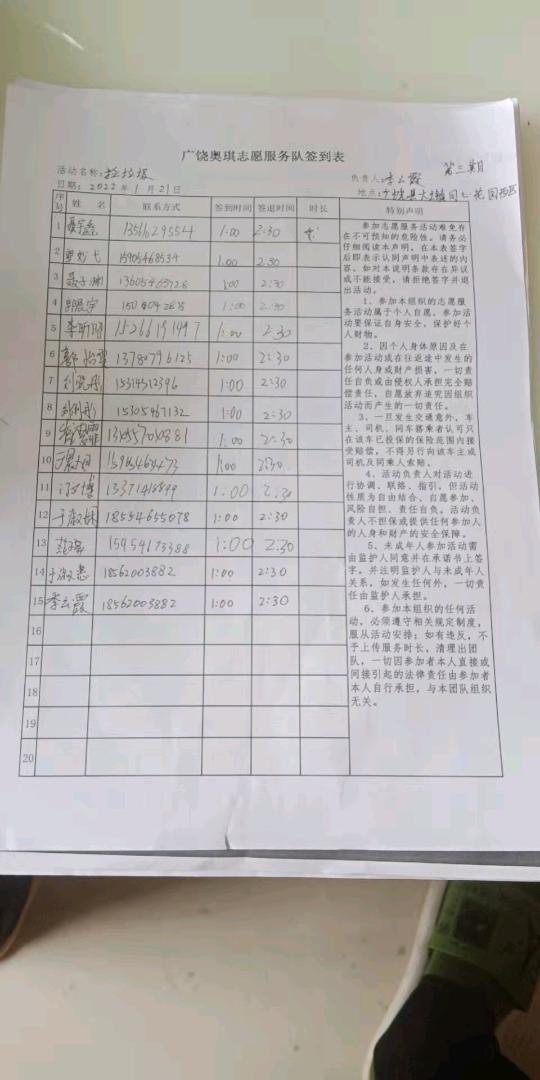 广饶奥琪志愿服务队签到表
第三期
活动名称：捡垃圾 负责人：李云霞
日期：2022年1月21日 地点：广饶县大
序号 姓 名 联系方式 签到时间 签退时间 时长 特别声明
1 1:00 2:30
2 15905468534 1:00 2:30
3 1:00 2:30
4 1:00 2:30
5 李昕阳 1:00 2:30
6 13780796125 1:00 2:30
7 15314512396 1:00 2:30
8 15305467132 1:00 2:30
9 1:00 2:30
10 1:00 2:30
11 1:00 2:30
12 于淑娟 18554655078 1:00 2:30
13 15954673388 1:00 2:30
14 18562003882 1:00 2:30
15 李云霞 18562003882 1:00 2:30
16
17
18
19
20
参加志愿服务活动难免存
在不可预知的危险性。请务必
仔细阅读本声明，在本表签字
后即表示认同声明中表述的内
容。如对本说明条款存在异议
或不能接受，请拒绝签字并退
出活动。
1、参加本组织的志愿服
务活动属于个人自愿。参加活
动要保证自身安全，保护好个
人财物。
2、因个人身体原因及在
参加活动或在往返途中发生的
任何人身或财产损害，一切责
任自负或由侵权人承担完全赔
偿责任，自愿放弃追究因组织
活动而产生的一切责任。
3、一旦发生交通意外，车
主、司机、同车搭乘者认可只
在该车已投保的保险范围内接
受赔偿，不得另行向该车主或
司机及同乘人索赔。
4、活动负责人对活动进
行协调、联络、指引，但活动
性质为自由结合、自愿参加、
风险自担、责任自负。活动负
责人不担保或提供任何参加人
的人身和财产的安全保障。
5、未成年人参加活动需
由监护人同意并在承诺书上签
字，并注明监护人与未成年人
关系，如发生任何外，一切责
任由监护人承担。
6、参加本组织的任何活
动，必须遵守相关规定制度，
服从活动安排；如有违反，不
予上传服务时长，清理出团
队，一切因参加者本人直接或
间接引起的法律责任由参加者
本人自行承担，与本团队组织
无关。